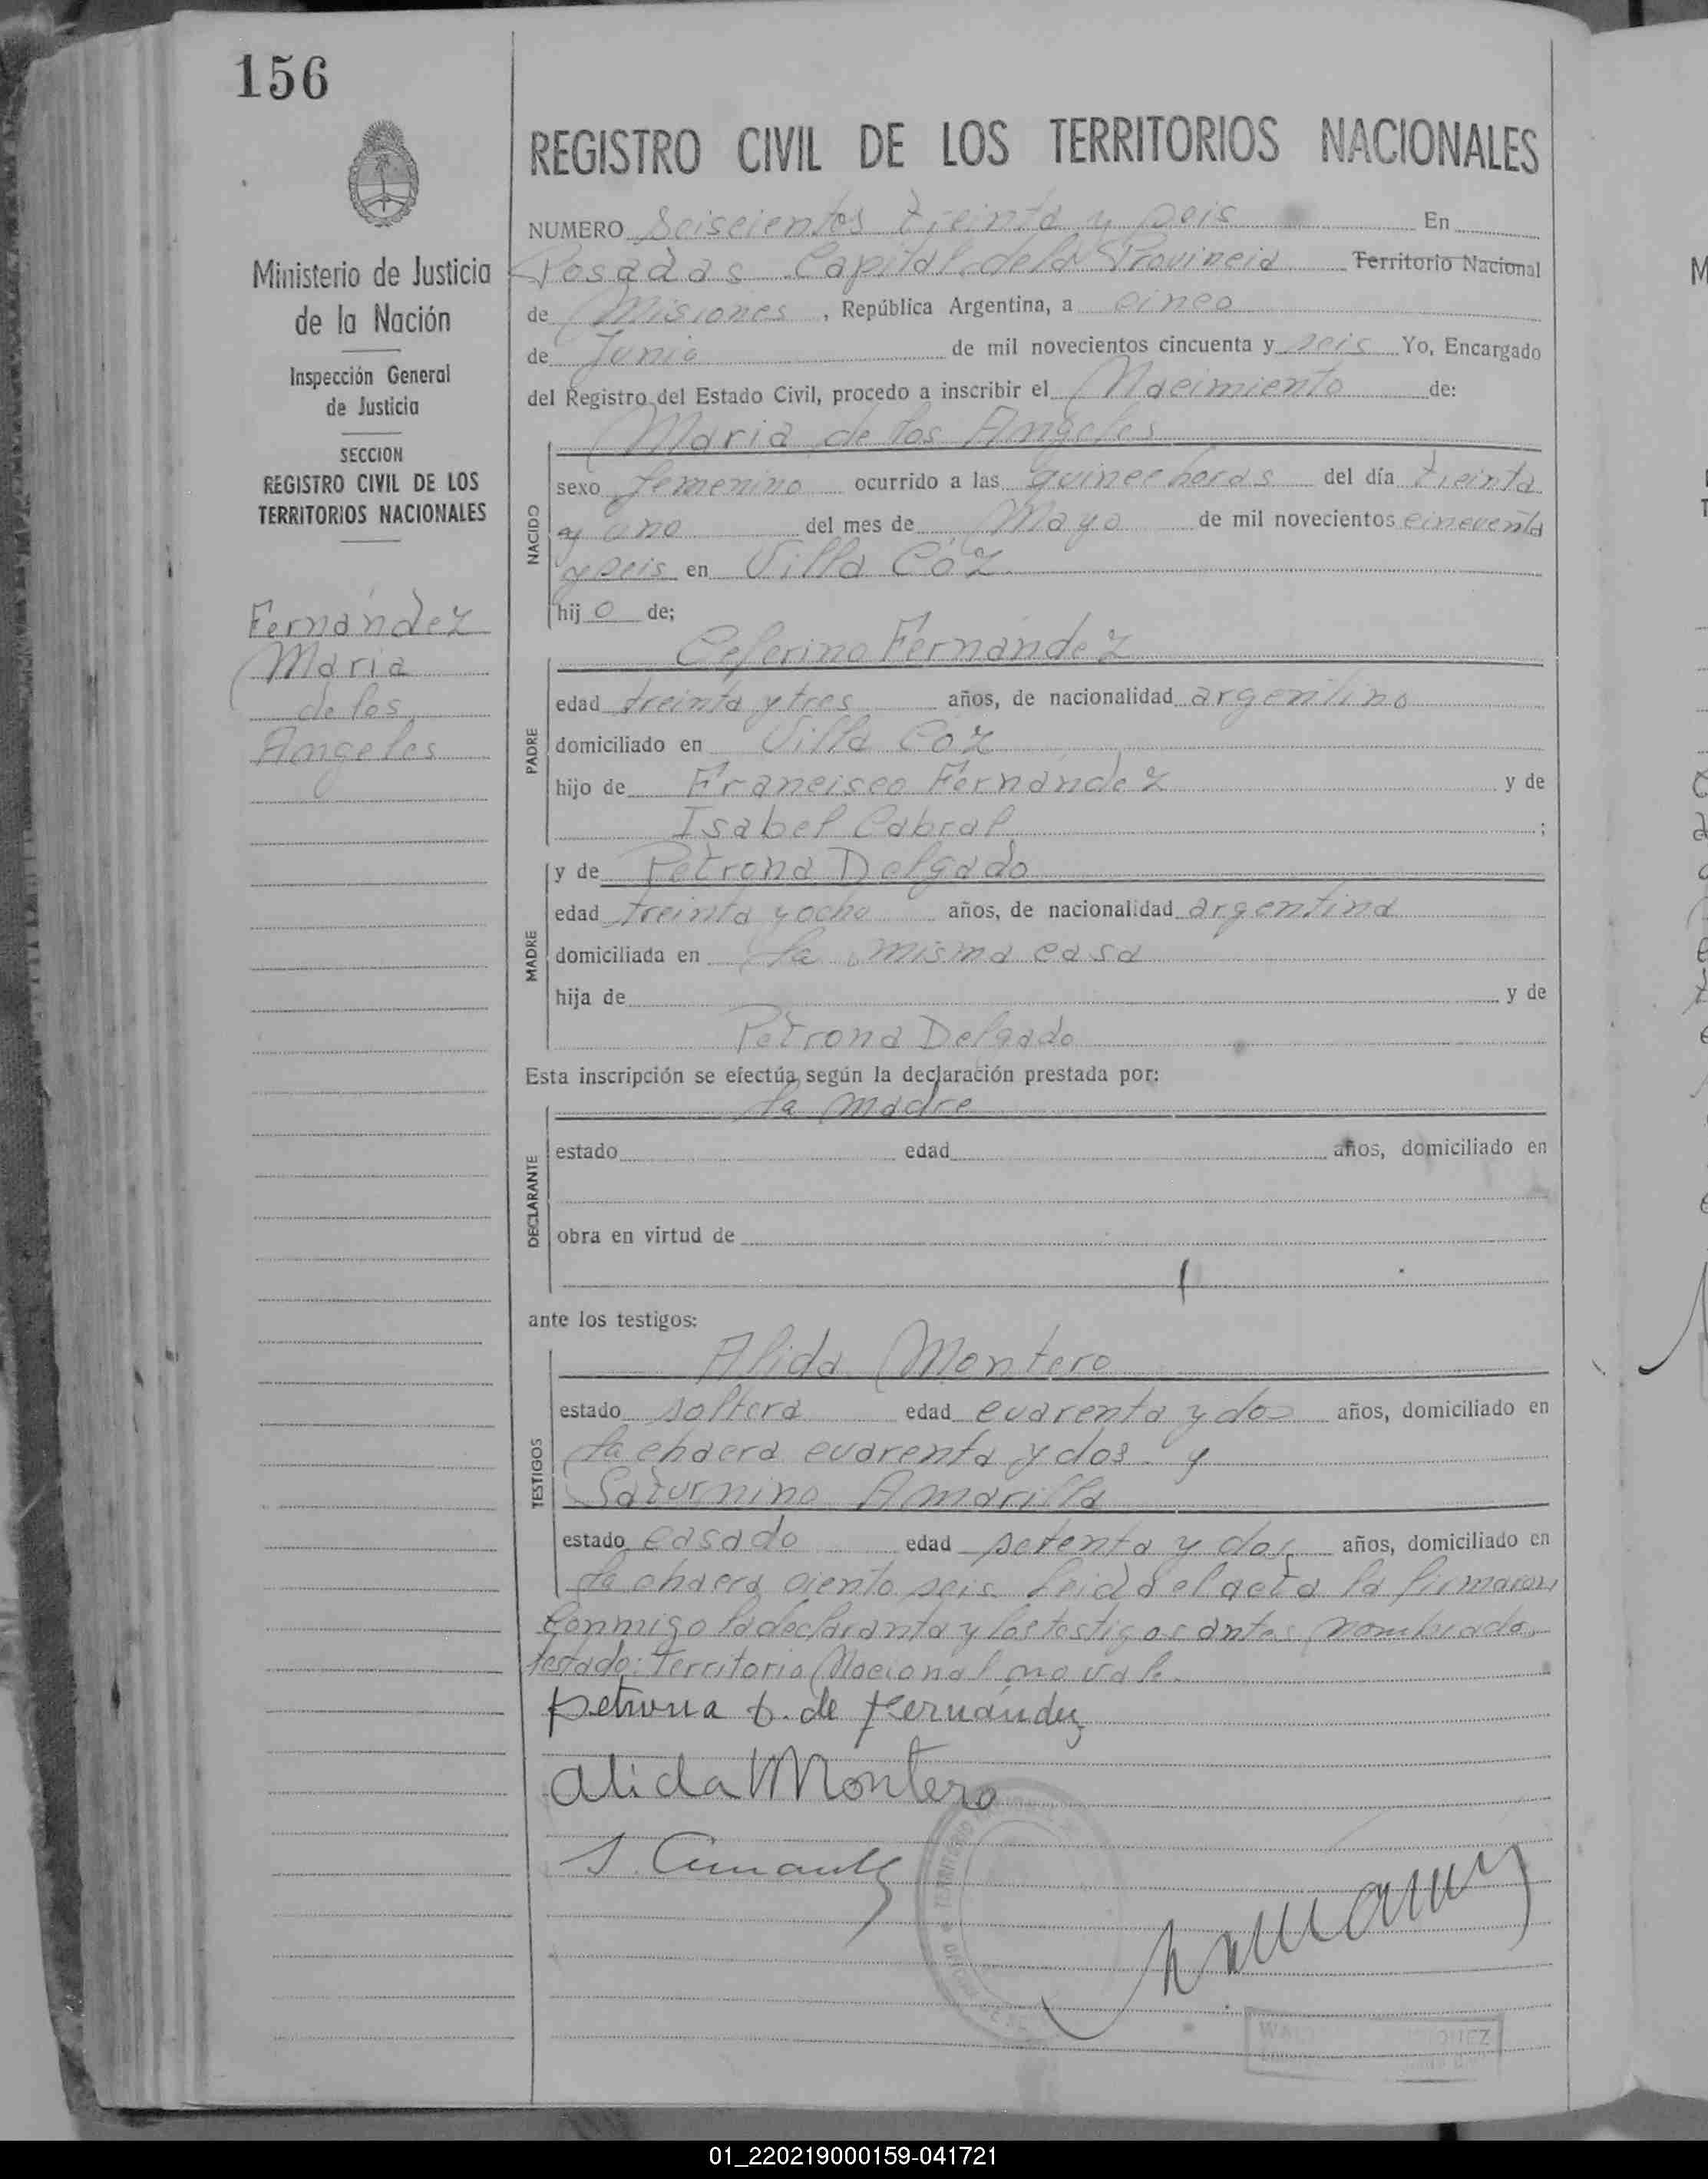 156
REGISTRO CIVIL DE LOS TERRITORIOS NACIONALES
Ministerio de Justicia
de la Nación
Inspección General
de Justicia
SECCION
REGISTRO CIVIL DE LOS
TERRITORIOS NACIONALES
Fernández
Maria
de los
Angeles
NUMERO Seiscientos treinta y seis En
Posadas Capital de la Provincia Territorio Nacional
de Misiones, República Argentina, a cinco
de Junio de mil novecientos cincuenta y seis Yo, Encargado
del Registro del Estado Civil, procedo a inscribir el Nacimiento de:
Maria de los Angeles
NACIDO
sexo femenino ocurrido a las quince horas del día treinta
y uno del mes de Mayo de mil novecientos cincuenta
y seis en Villa Cóz
hijo de;
Ceferino Fernández
PADRE
edad treinta y tres años, de nacionalidad argentino
domiciliado en Villa Coz
hijo de Francisco Fernández y de
Isabel Cabral ;
y de Petrona Delgado
MADRE
edad treinta y ocho años, de nacionalidad argentina
domiciliada en la misma casa
hija de y de
Petrona Delgado
Esta inscripción se efectúa según la declaración prestada por:
la madre
DECLARANTE
estado edad años, domiciliado en
obra en virtud de
ante los testigos:
Alida Montero
TESTIGOS
estado soltera edad cuarenta y dos años, domiciliado en
la chacra cuarenta y dos y
Saturnino Amarilla
estado casado edad setenta y dos años, domiciliado en
la chacra ciento seis. Leida el acta la firmaron
Conmigo la declaranta y los testigos antes nombrados.
testado: Territorio Nacional no vale.
petrona D. de Fernández
alida Montero
01_220219000159-041721